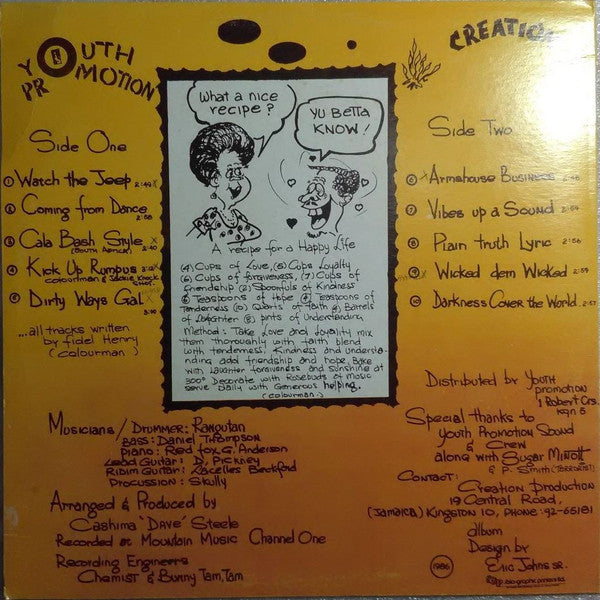 YOUTH
PROMOTION
CREATION
What a nice
recipe?
YU BETTA
KNOW!
Side One
① Watch the Jeep 2:49 x
② Coming from Dance
2:58
③ Cala Bash Style x
(South Africa) 2:40
④ Kick Up Rumpus
colourman & Jackie Knock
Shot
⑤ Dirty Ways Gal x
3:10
...all tracks written
by fidel Henry
(colourman)
A recipe for a Happy Life
(4) Cups of Love, (5) Cups Loyalty
(6) Cups of forgiveness, (7) Cups of
friendship (2) Spoonfuls of Kindness
Teaspoons of Hope Teaspoons of
Tenderness (10) Quarts of Faith Barrels
of Laughter pints of Understanding
Method: Take Love and loyality mix
them thoroughly with faith blend
with tenderness, Kindness and understa-
nding add friendship and hope, Bake
with Laughter forgiveness and sunshine at
300° Decorate with Rosebuds of Music
serve Daily with Generous helping.
(colourman)
Side Two
⑥ x Armshouse Business 2:48
⑦ Vibes up a Sound 2:54
⑧ Plain truth Lyric 2:56
⑨ Wicked dem Wicked 2:59
⑩ Darkness Cover the World 2:57
Distributed by Youth
promotion
1 Robert Crs.
kgn 5
Musicians/Drummer: Rangutan
Bass: Daniel Thompson
piano: Red fox G. Anderson
Lead Guitar: D. Pickney
Ridim Guitar: Kacelles Beckford
Procussion: Skully
Arranged & Produced by
Cashima 'Dave' Steele
Recorded at Mountain Music Channel One
Recording Engineers
Chemist & Bunny Tam, Tam
Special thanks to
Youth Promotion Sound
& Crew
along with Sugar Minott
& P. Smith (Terrorist)
Contact:
Creation Production
19 Central Road,
(Jamaica) Kingston 10, Phone: 92-65181
album
Design by
Eric Johns sr.
1986